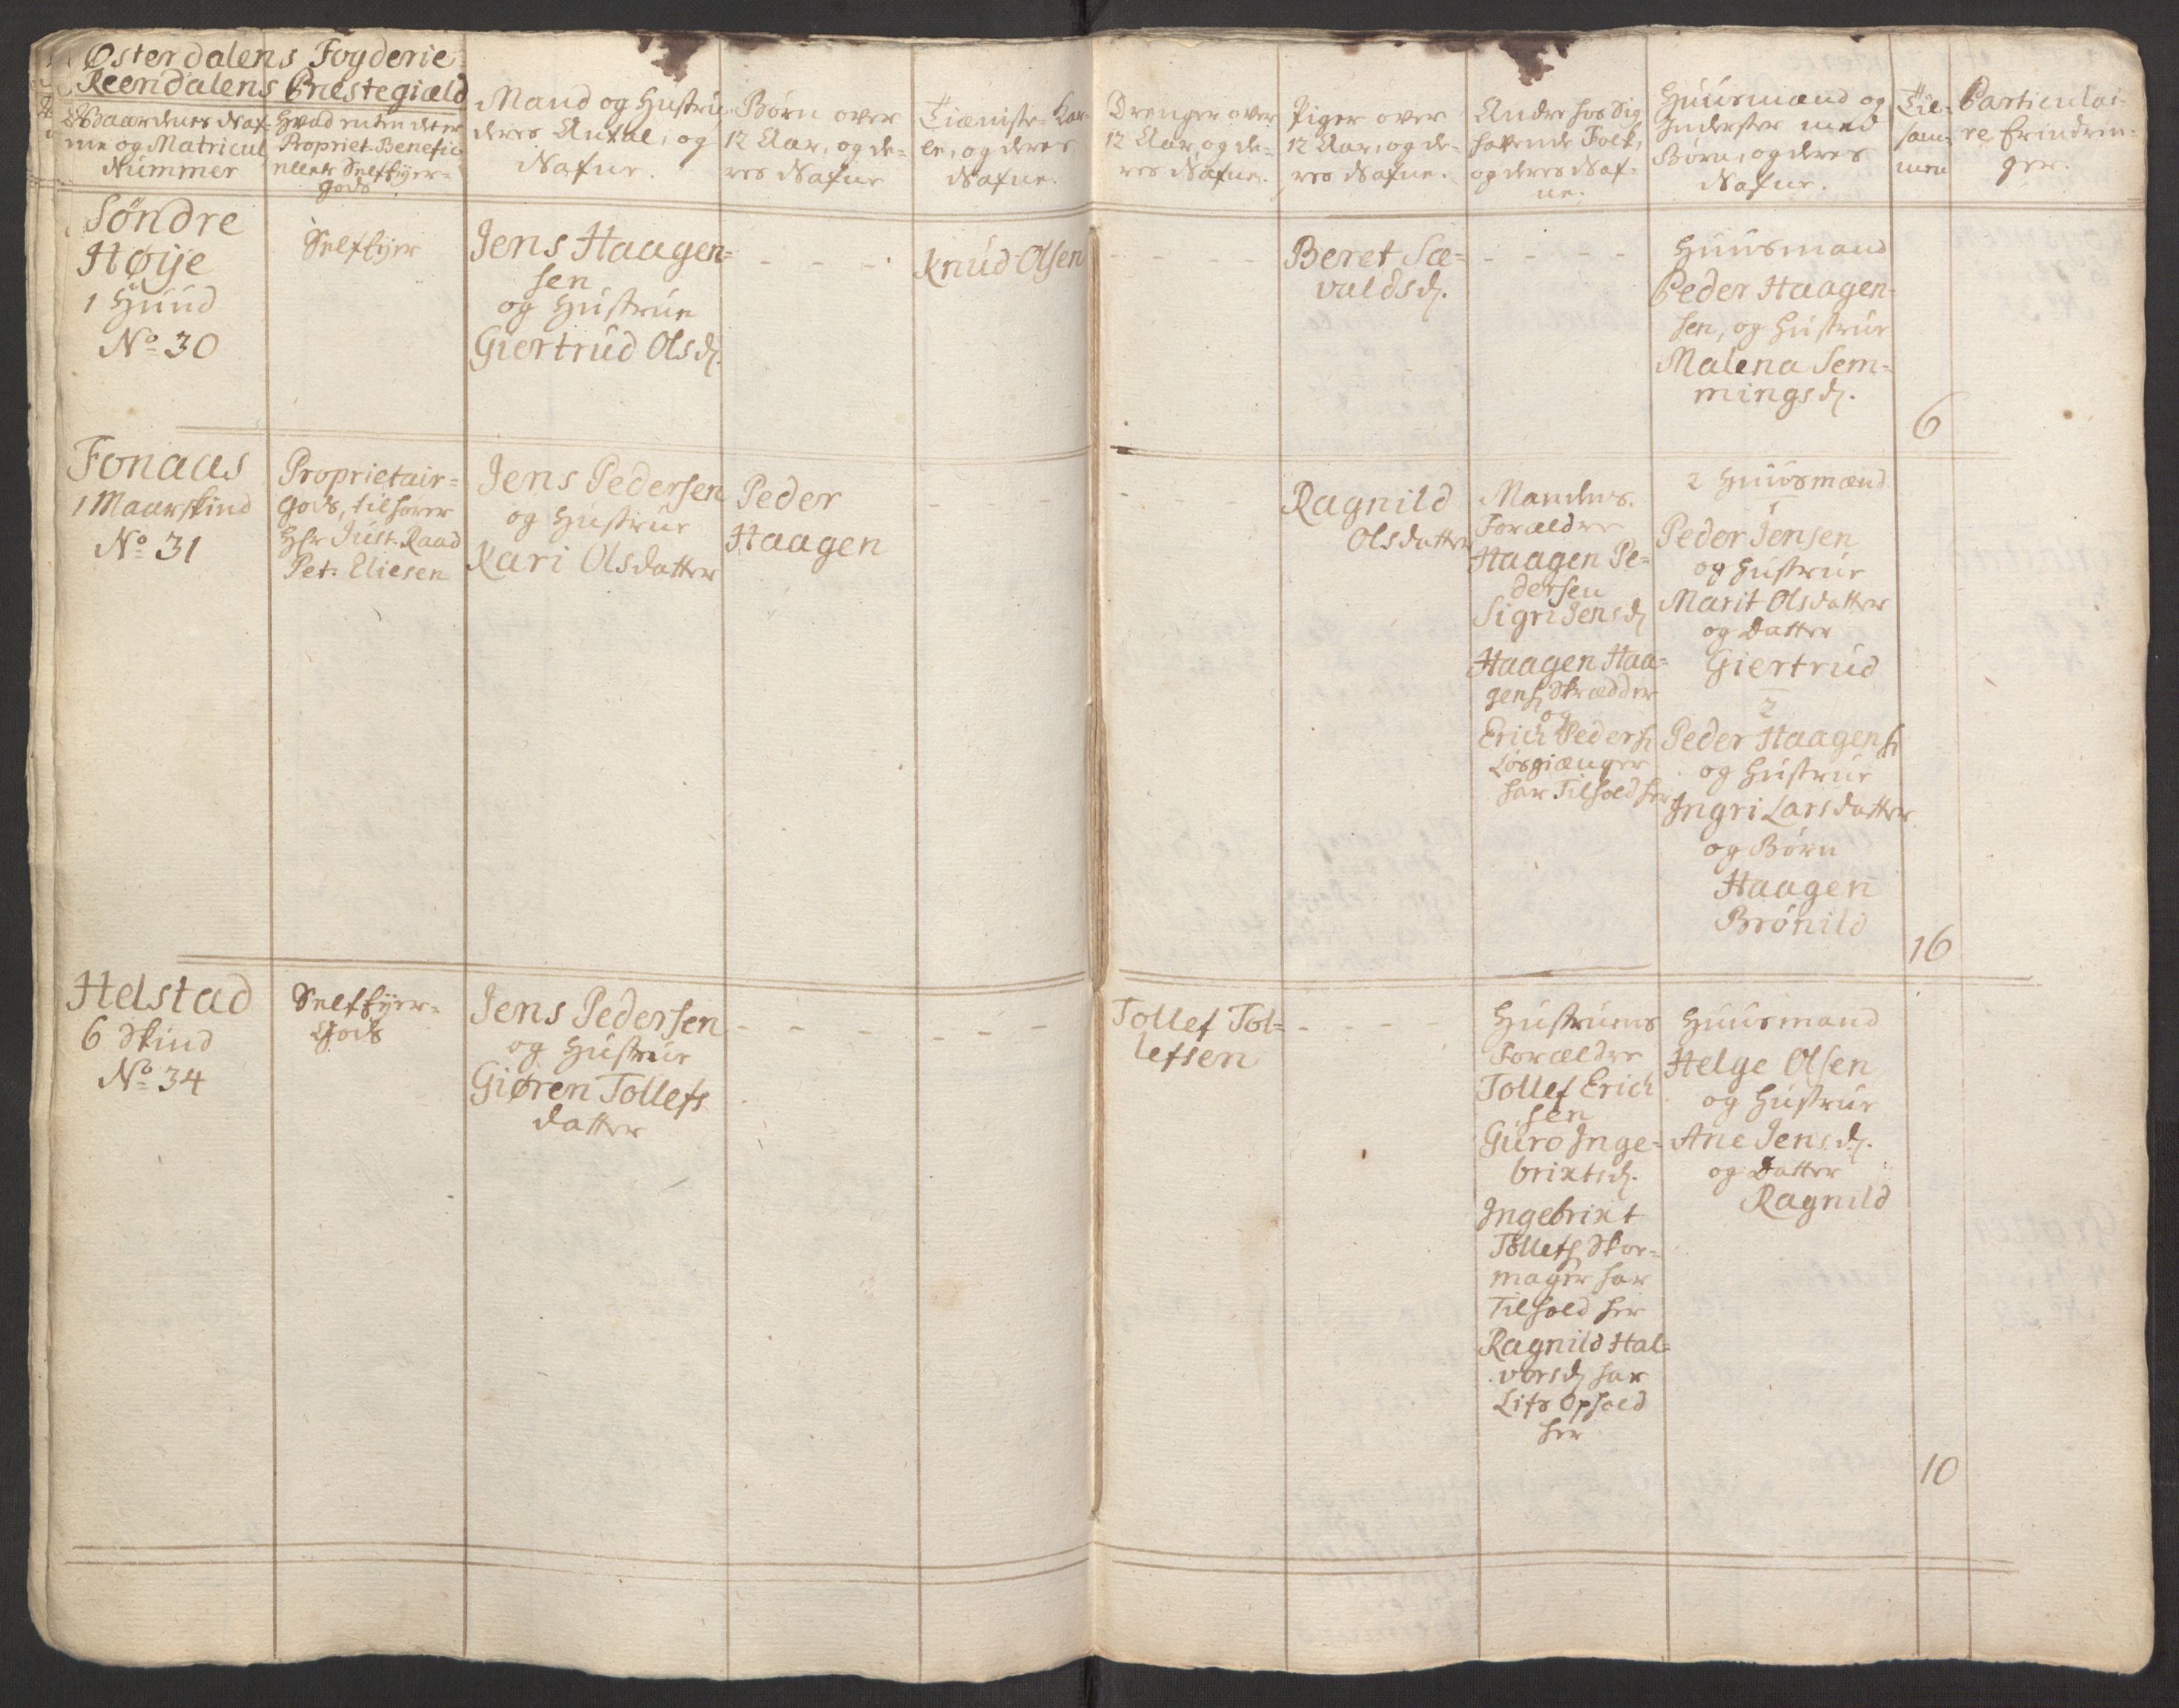 Østerdalens Fogderie
Reendalens Præstegiæld
Gaardenes Naf-
ne og Matricul
Nummer
Hvad enten det er
Propriet. Benefic.
eller Selfeyer-
gods
Mand og Hustrue
deres Antal, og
Nafne.
Børn over
12 Aar, og de-
res Nafne
Tieniste-Kar-
le, og deres
Nafne.
Drenger over
12 Aar, og de-
res Nafne.
Piger over
12 Aar, og de-
res Nafne.
Andre hos Sig
hafvende Folk,
og deres Naf-
ne.
Huusmænd og
Inderster med
Børn, og deres
Nafne.
Til-
sam-
men
Particulai-
re Erindrin-
ger.
Søndre
Høije
1 Huud
No 30
Selfeyer
Jens Haagen-
sen
og Hustrue
Giertrud Olsd.
Knud Olsen
Beret Sæ-
valdsd.
Huusmand
Peder Haagen-
sen, og Hustrue
Malena Sem-
mingsd.
6
Fonaas
1 Maarskind
No 31
Proprietair-
gods, tilhører
Hr Just. Raad
Pet. Eliesen
Jens Pedersen
og Hustrue
Kari Olsdatter
Peder
Haagen
Ragnild
Olsdatter
Mandens
Forældre
Haagen Pe-
dersen
Sigri Jensd
Haagen Haa-
gens. Skrædder
og
Erich Peders.
Løsgiænger
har Tilhold her
2 Huusmænd
1
Peder Jensen
og Hustrue
Marit Olsdatter
og Datter
Giertrud
2
Peder Haagens.
og Hustrue
Ingri Larsdatter
og Børn
Haagen
Brønild
16
Helstad
6 Skind
No 34
Selfeyer-
Gods
Jens Pedersen
og Hustrue
Giøren Tollefs
datter
Tollef Tol-
lefsen
Hustruens
Forældre
Tollef Erich
sen
Guro Inge-
brixtsd.
Ingebrixt
Tollefs. Skoe-
mager har
Tilhold her
Ragnild Hal-
vorsd har
Lifs Ophold
her
Huusmand
Helge Olsen
og Hustrue
Ane Jensd.
og Datter
Ragnild
10